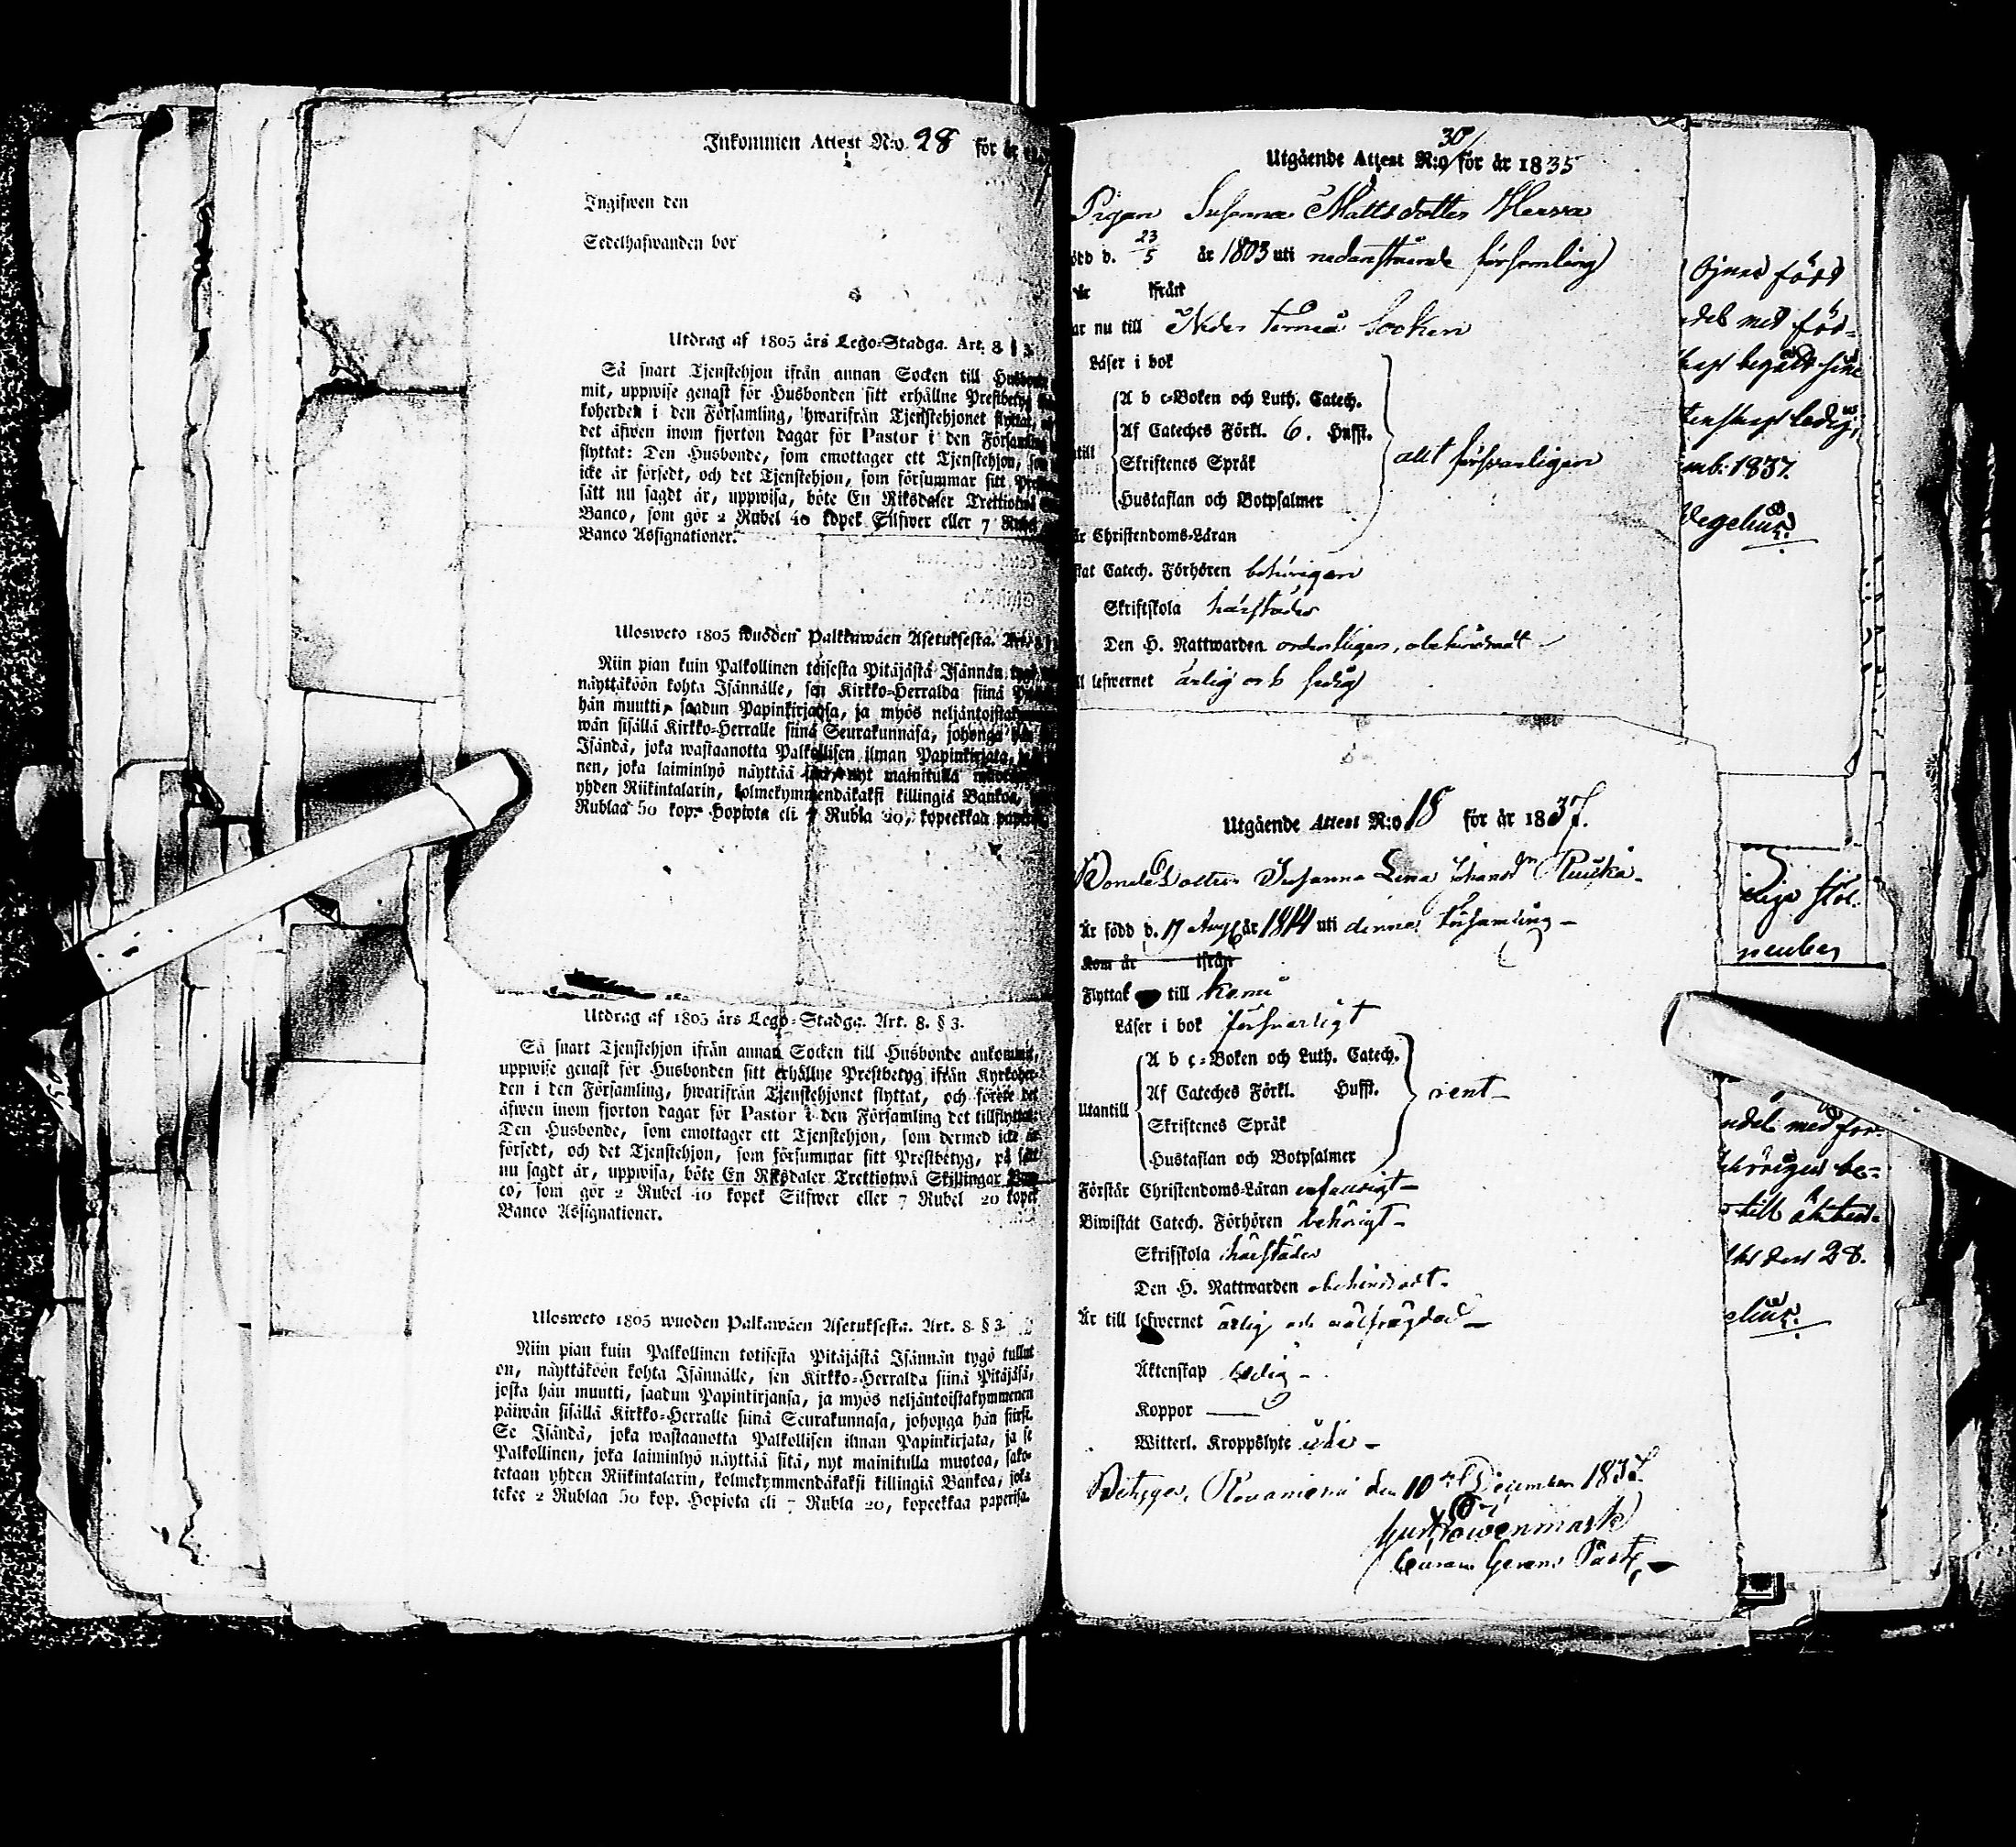 Inkommen Attest N:o 28 för år
Ingifwen den
Sedelhafwanden bor
Utdrag af 1805 års Lego-Stadga. Art. 8 § 3.
Så snart Tjenstehjon ifrån annan Socken till
mit, uppwise genast för Husbonden sitt erhållne Prestbetyg
koherden i den Församling, hwarifrån Tjenstehjonet flyttat,
det äfwen inom fjorton dagar för Pastor i den
flyttat: Den Husbonde, som emottager ett Tjenstehjon,
icke är försedt, och det Tjenstehjon, som försummar sitt
sätt nu sagdt är, uppwisa, böte En Riksdaler
Banco, som gör 2 Rubel 40 kopek Silfwer eller 7
Banco Assignationer.
Ulosweto 1805 wuoden Palkkawäen Asetuksesta.
Niin pian kuin Palkollinen toisesta Pitäjästä Isännän
näyttäköön kohta Isännälle, sen Kirkko-Herralda siinä
hän muutti, saadun Papinkirjansa, ja myös
wän sisällä Kirkko-Herralle siinä Seurakunnasa, johonga
Isändä, joka wastaanotta Palkollisen ilman Papinkirjata,
nen, joka laiminlyö näyttää nyt mainitulla
yhden Riikintalarin, kolmekymmendäkaksi killingiä Bankoa,
Rublaa 50 kop. Hopiota eli 7 Rubla 20, kopeekkaa
Utdrag af 1805 års Lego-Stadga. Art. 8. § 3.
Så snart Tjenstehjon ifrån annan Socken till Husbonde ankommit,
uppwise genast för Husbonden sitt erhållne Prestbetyg ifrån Kyrkoher-
den i den Församling, hwarifrån Tjenstehjonet flyttat, och förete det
äfwen inom fjorton dagar för Pastor i den Församling det tillflyttat:
Den Husbonde, som emottager ett Tjenstehjon, som dermed icke är
försedt, och det Tjenstehjon, som försummar sitt Prestbetyg, på sätt
nu sagdt är, uppwisa, böte En Riksdaler Trettiotwå Skillingar Ban-
co, som gör 2 Rubel 40 kopek Silfwer eller 7 Rubel 20 kopek
Banco Assignationer.
Ulosweto 1805 wuoden Palkawäen Asetuksesta. Art. 8. § 3.
Niin pian kuin Palkollinen totisesta Pitäjästä Isännän tygö tullut
on, näyttäköön kohta Isännälle, sen Kirkko-Herralda siinä Pitäjäsä,
josta hän muutti, saadun Papinkirjansa, ja myös neljäntoistakymmenen
päiwän sisällä Kirkko-Herralle siinä Seurakunnasa, johonga hän siirsi.
Se Isändä, joka wastaanotta Palkollisen ilman Papinkirjata, ja se
Palkollinen, joka laiminlyö näyttää sitä, nyt mainitulla muotoa, sako-
tetaan yhden Riikintalarin, kolmekymmendäkaksi killingiä Bankoa, joka
tekee 2 Rublaa 50 kop. Hopiota eli 7 Rubla 20, kopeekkaa paperisa.
Utgående Attest N:o 30 för år 1835
Pigan Susanna Mattsdotter Herva
ödd d. 23/5 år 1803 uti nedanstående församling
år ifrån
ar nu till Neder Torneå Socken
Läser i bok
A b c-Boken och Luth. Catech.
Af Cateches Förkl. 6. Hufst.
till
Skriftenes Språk
allt försvarligen
Hustaflan och Botpsalmer
är Christendoms-Läran
stat Catech. Förhören behörigen
Skriftskola härstädes
Den H. Nattwarden ordentligen, obehindradt
ll lefwernet ärlig och sedig
Utgående Attest N:o 18 för år 1837.
Bonde Dottern Susanna Lena Johansdr Ruuska
Är född d. 17 Aug år 1814 uti denna Församling
Kom år ifrån
Flyttat till Kemi
Läser i bok försvarligt
A b c-Boken och Luth. Catech.
Af Cateches Förkl. Hufst.
Utantill
rent
Skriftenes Språk
Hustaflan och Botpsalmer
Förstår Christendoms-Läran enfaldigt
Biwiståt Catech. Förhören behörigt
Skrifskola härstädes
Den H. Nattwarden obehindradt
Är till lefwernet ärlig och välfrägdad
Äktenskap ledig
Koppor
Witterl. Kroppslyte utan
Betygar, Rovaniemi den 10de December 1837.
Past
Ojnas född
del med för-
begått sine
ledig,
mb. 1837.
Wegelius
ndel med för-
behörigen be-
till äkten-
den 28.
elius